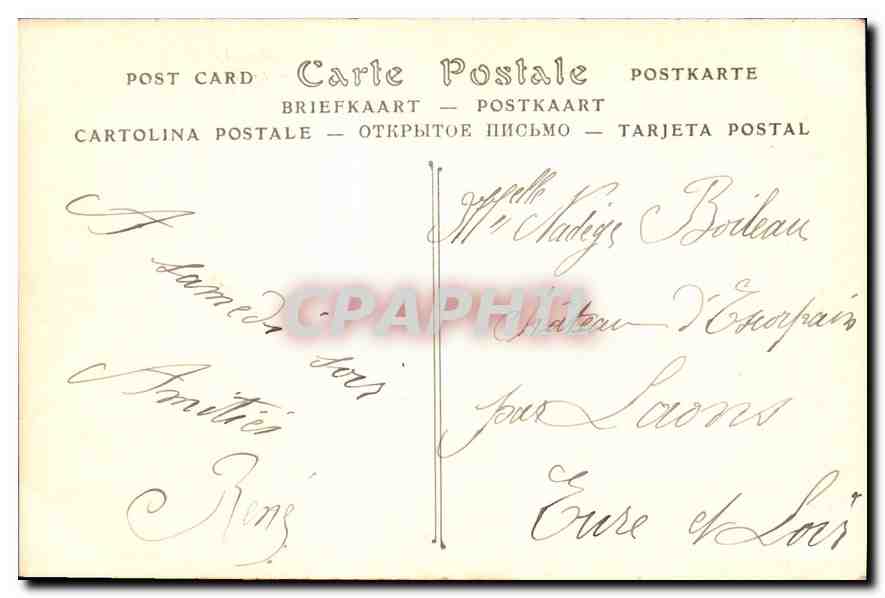 POST CARD Carte Postale POSTKARTE
BRIEFKAART — POSTKAART
CARTOLINA POSTALE — ОТКРЫТОЕ ПИСЬМО — TARJETA POSTAL
A
samedi
soir
Amitiés
René
Melle Nadège Boileau
Château d'Escorpain
par Laons
Eure et Loir
CPAPHIL